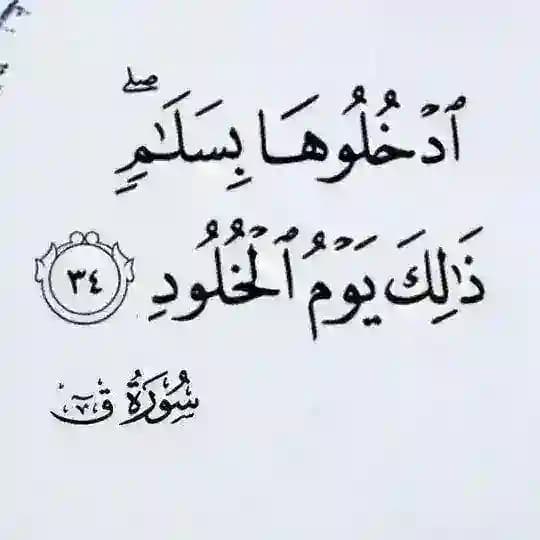 ٱدْخُلُوهَا بِسَلَـٰمٍۖ
ذَٰلِكَ يَوْمُ ٱلْخُلُودِ ٣٤
سُورَةُ ق